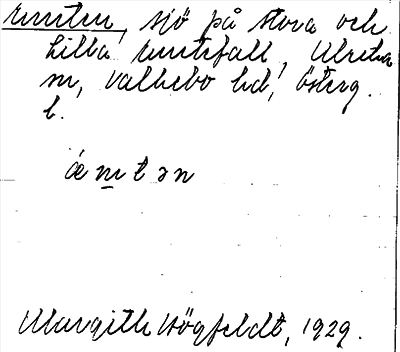 Emten, sjö på Stora och
Lilla Emtefall, Ulrika
sn, Valkebo hd, Österg.
l.
ǽ m t ə n
Margith Högfeldt, 1929.